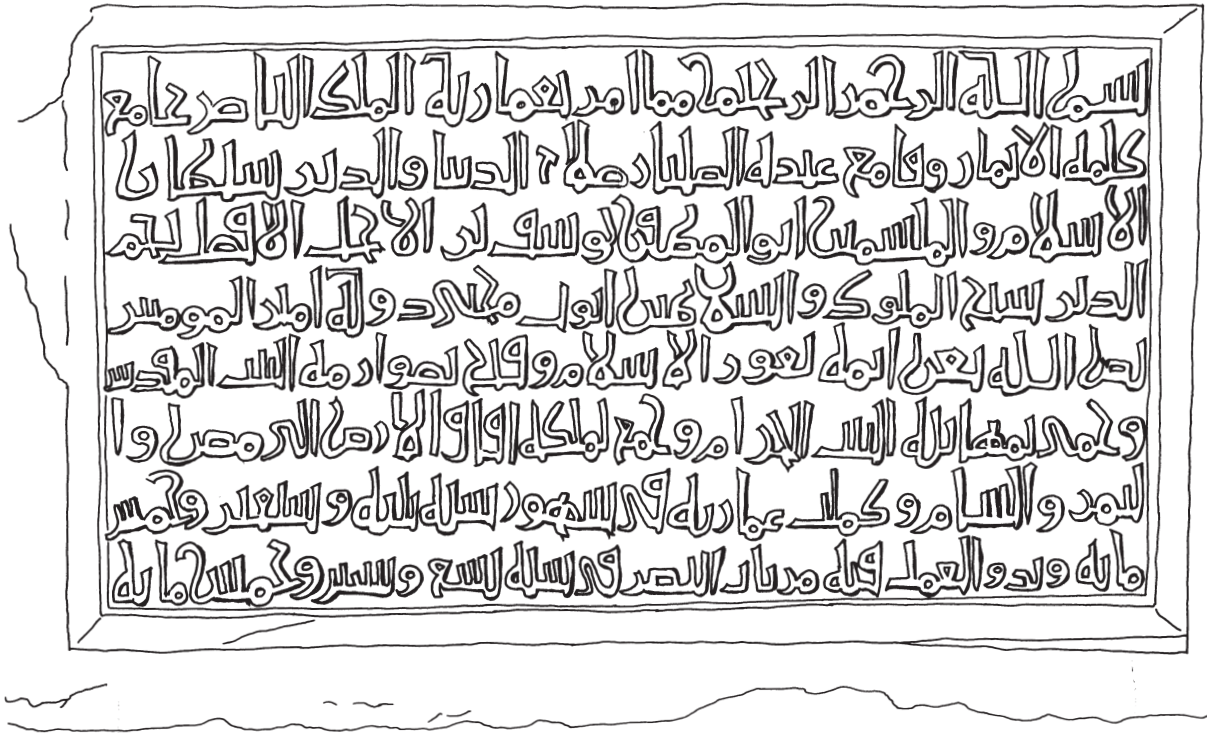 بسم الله الرحمن الرحيم مما امر بعمارته الملك الناصر جامع
كلمة الايمان وقامع عبدة الصلبان صلاح الدنيا والدين سلطان
الاسلام والمسلمين ابو المظفر يوسف بن الاجل الافضل نجم
الدين شيخ الملوك والسلاطين ايوب محيى دولة امير المومنين
الله تعلى ثغور الاسلام وفتح بصوارمه البيت المقدس
وحمى بمهابته البيت الحرام وجمع لملكه افاق الارض الى مصر وا
ليمن والشام وكملت عمارته فى شهور سنة ثلثة وسبعين وخمس
مائة وبدو العمل فيه من باب النصر فى سنة تسع وستين وخمس مائة